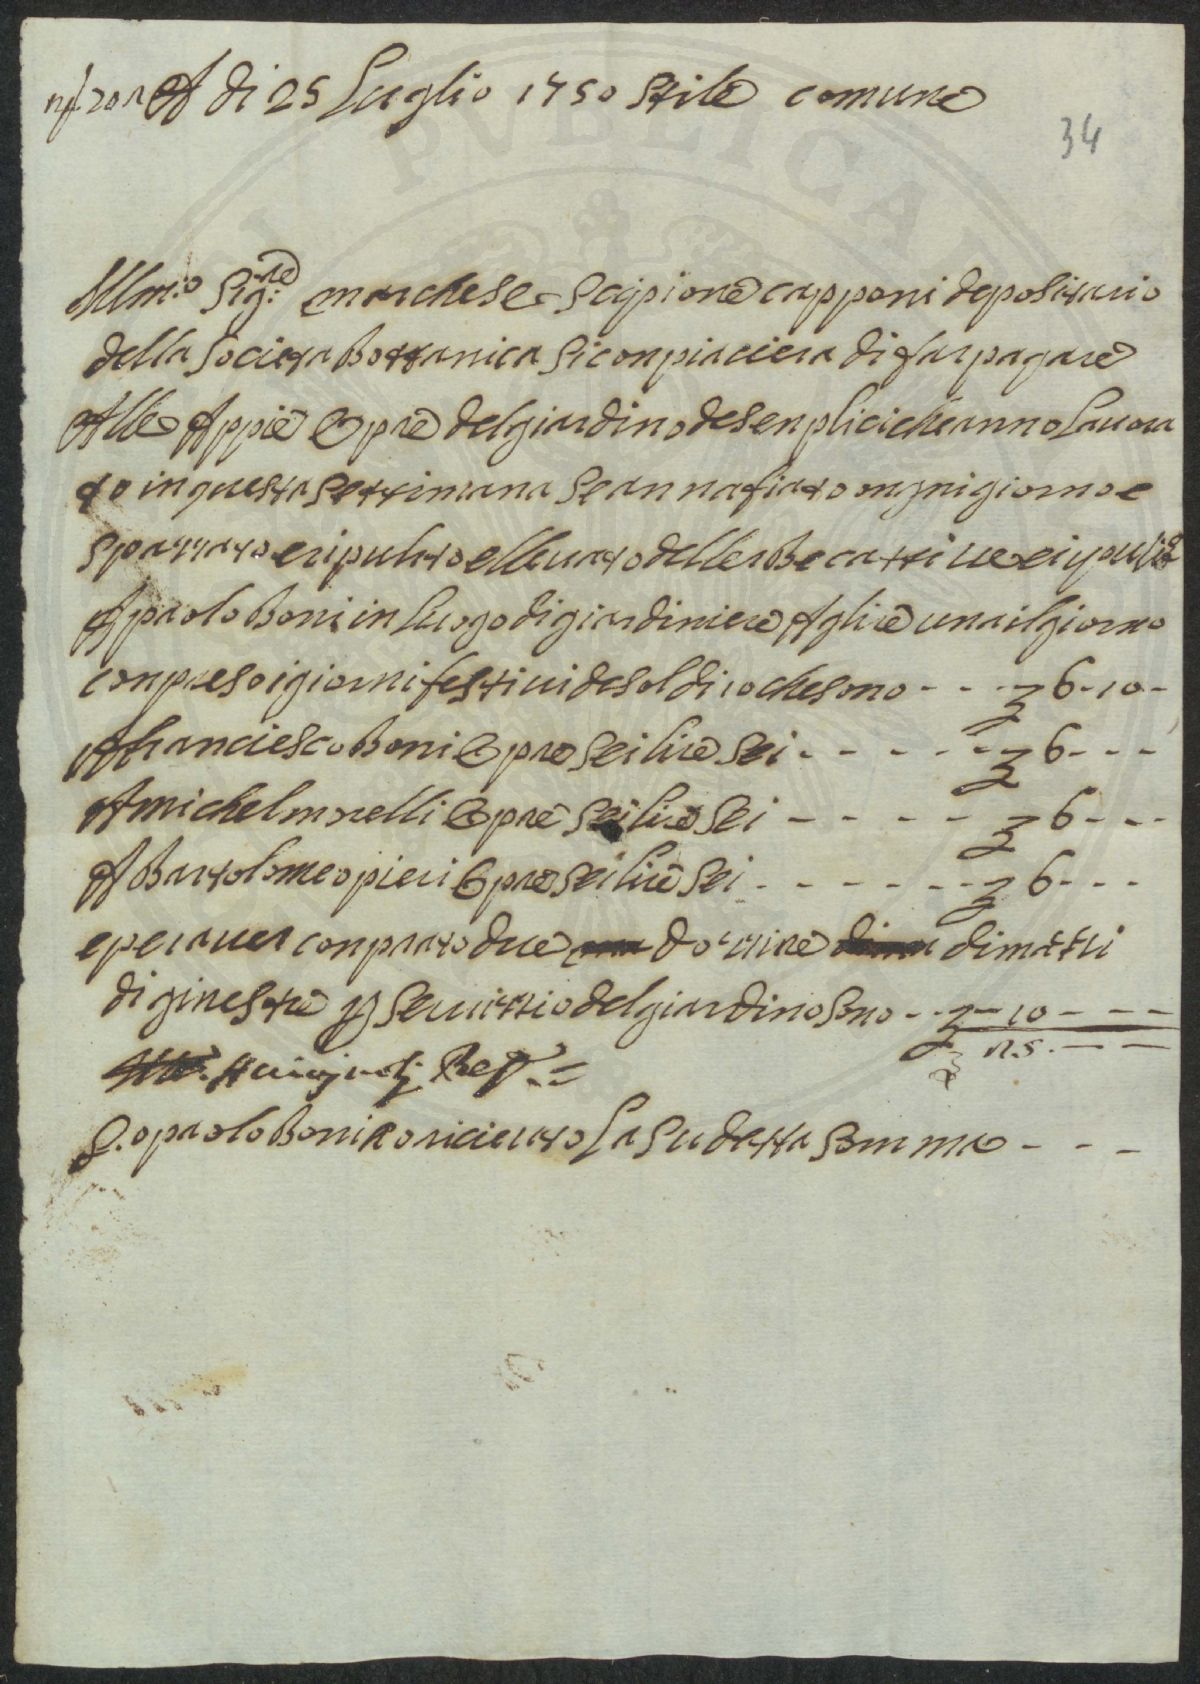 A di 25 Luglio 1750 Stile comune
34
Illm:o Sig:re marchese Scipione capponi depositario
della Societa Bottanica Si conpiaciera di far pagare
Alle Appie Opre del giardino de senplici che anno Lauora
to in questa Settimana Se annafiato ongni giorno e
Spazzato e ripulito elleuato dellerbe cattiue e ripulito
A paolo Boni in Luogo di giardiniere A lire una il giorno
conpreso i giorni festiui de soldi 10 che sono - - - £ 6-10-
A franciesco Boni Opre Sei lire Sei - - - - - - £ 6 - - -
A michel morelli Opre Sei lire Sei - - - - - £ 6 - - -
A Bartolomeo pieri Opre Sei lire Sei - - - - - - £ 6 - - -
e per auer conprato due dozzine di mazzi
di ginestre p Seruizzio del giardino Sono - - £ - 10 - - -
£ 25. - -
Io paolo Boni o riceuto La Sudetta Somma - - -